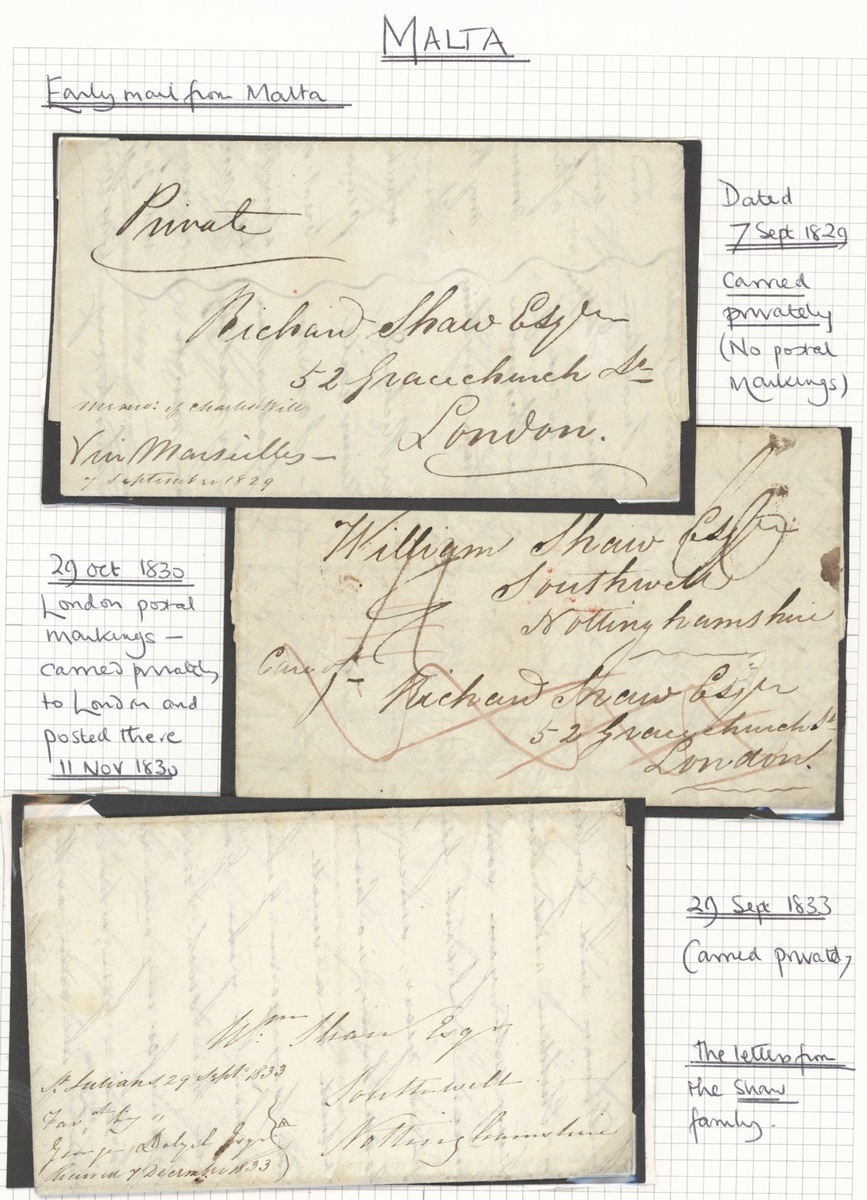 MALTA
Early mail from Malta
Private
Richard Shaw Esqre
52 Gracechurch St
London.
of Charles
Via Marseilles
7 September 1829
Dated
7 Sept 1829
Carried
privately
(No postal
Markings)
William Shaw Esqre
Southwell
Nottinghamshire
Care of
Richard Shaw Esqr
52 Gracechurch St
London.
29 Oct 1830
London postal
markings –
carried privately
to London and
posted there
11 Nov 1830
Wm Shaw Esqr
Southwell
Nottinghamshire
St Julians 29 Septr 1833
George Dalzel Esqr
7 December 1833
29 Sept 1833
Carried privately
The letters from
the Shaw
family.